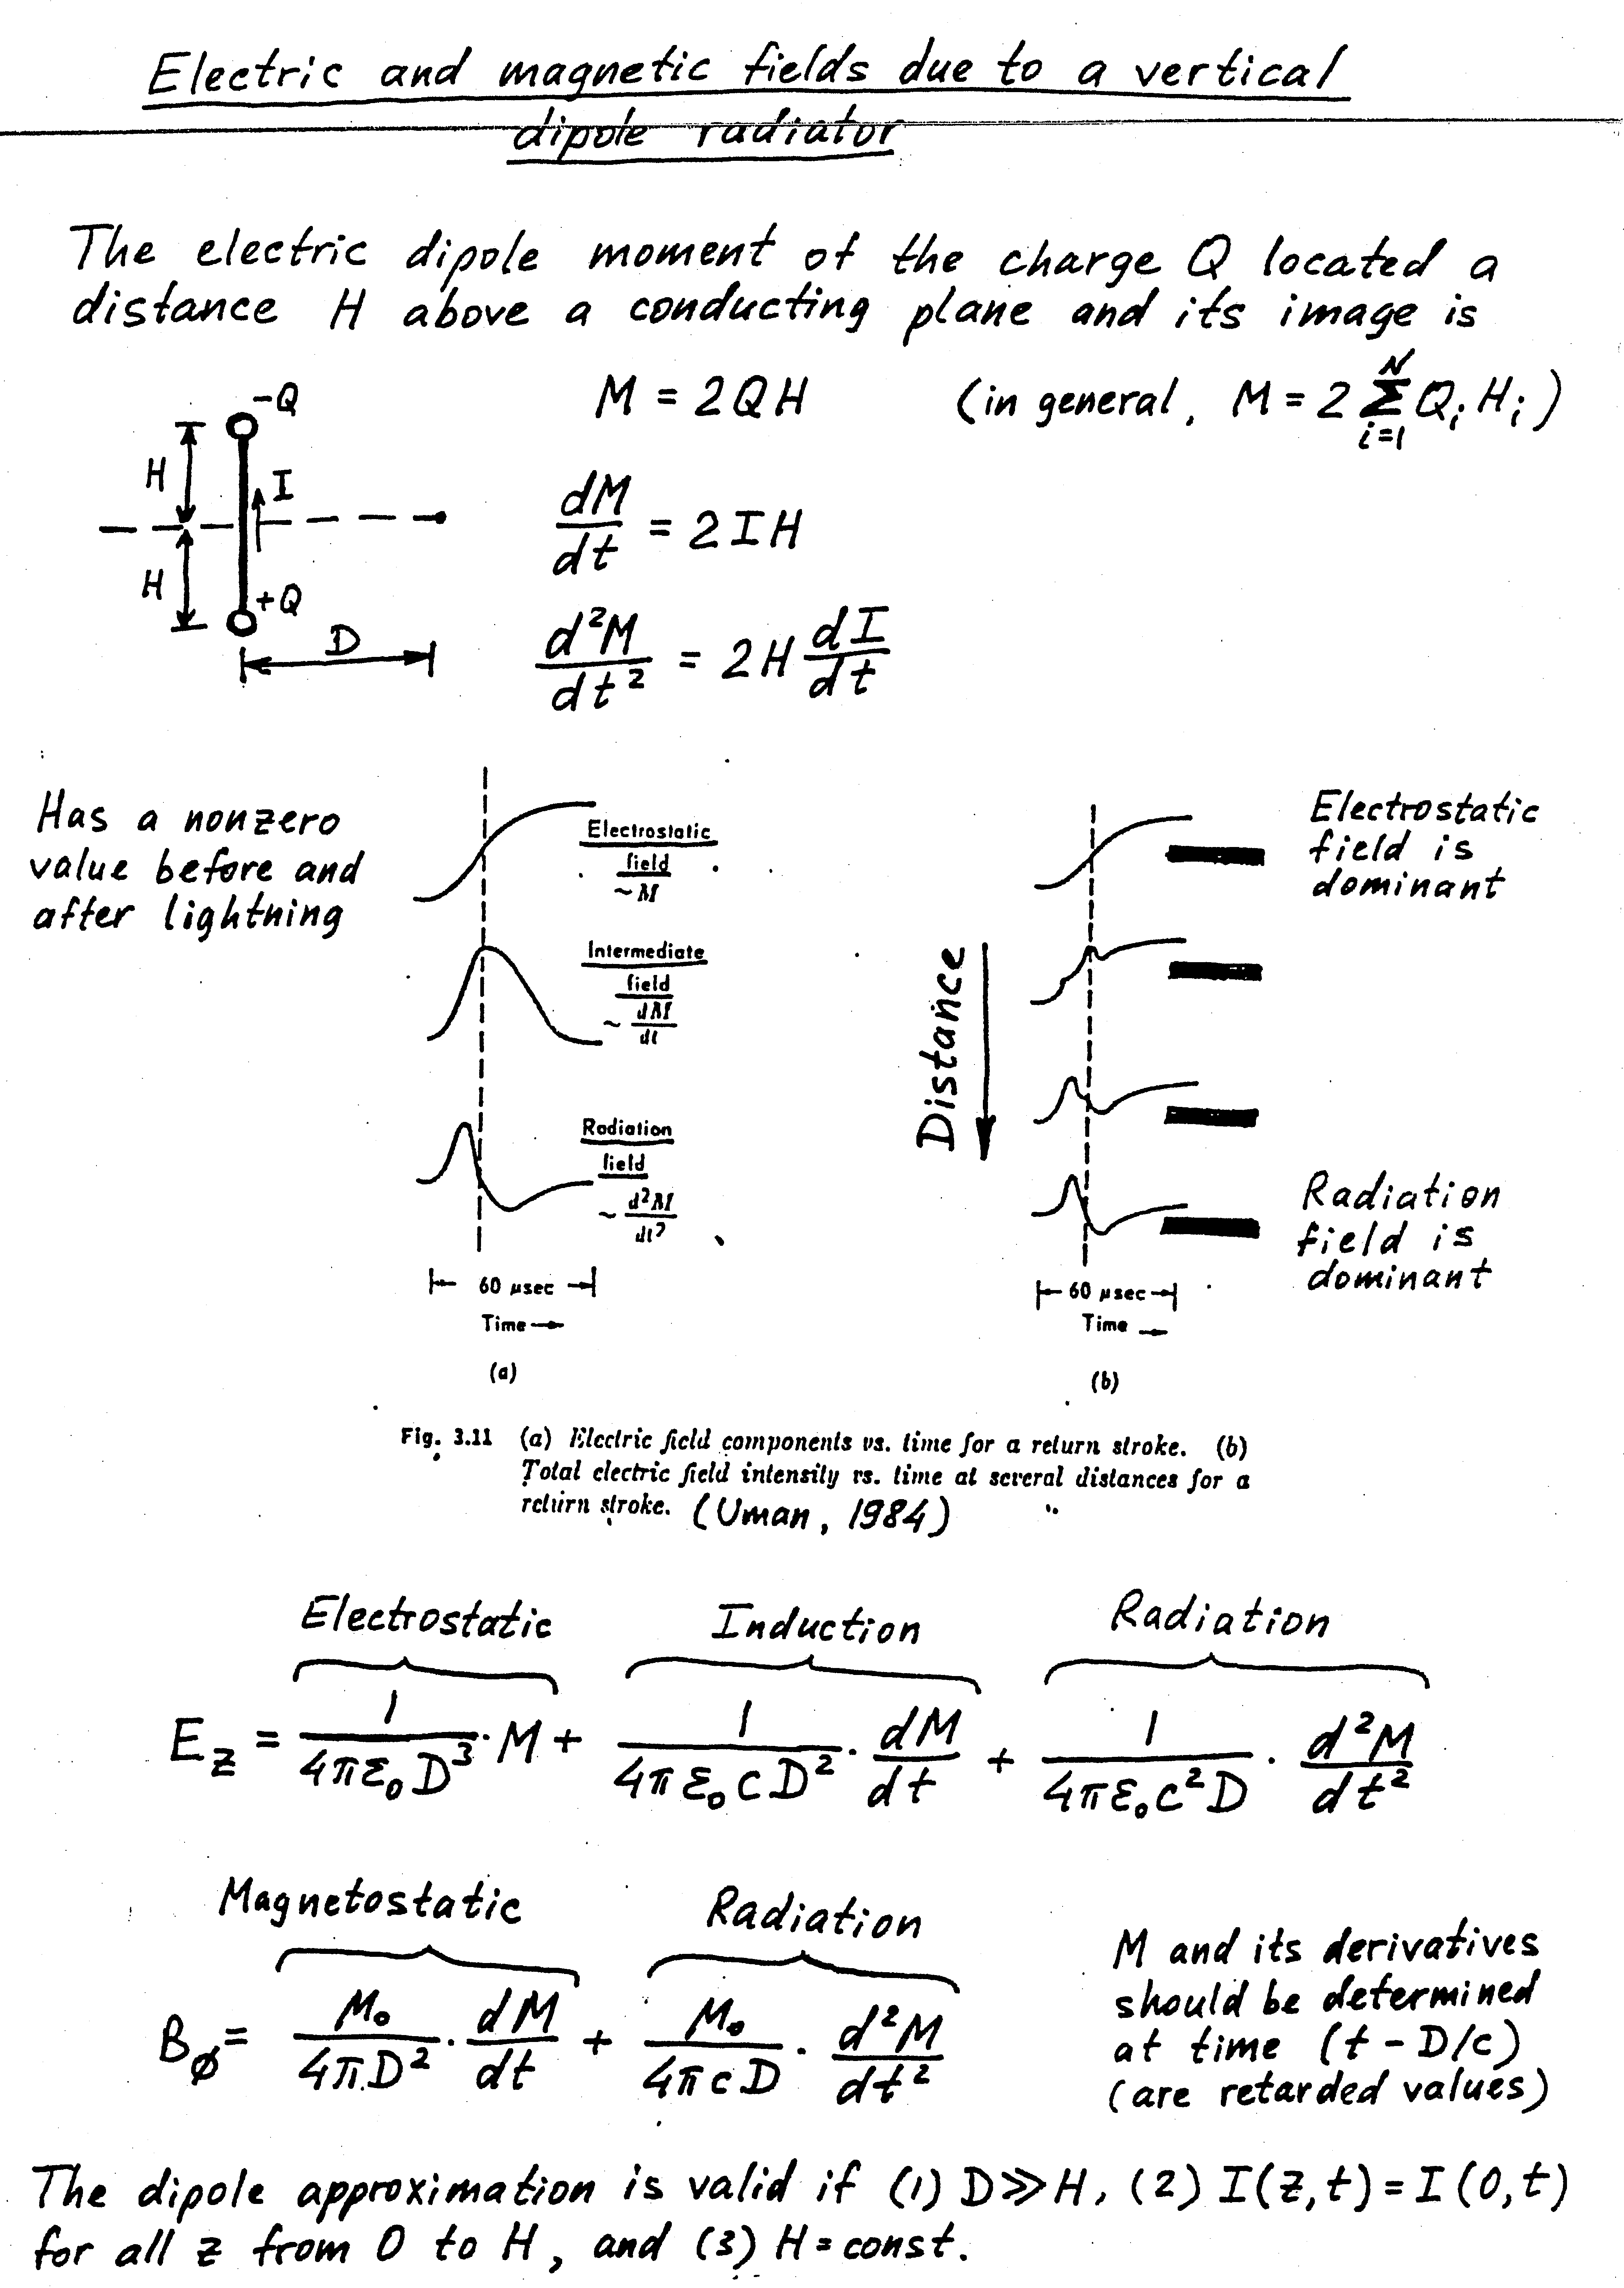 Electric and magnetic fields due to a vertical
dipole radiator
The electric dipole moment of the charge Q located a
distance H above a conducting plane and its image is
M = 2QH (in general, M = 2 \sum_{i=1}^{N} Q_i H_i)
-Q
H
I
H
+Q
D
dM/dt = 2IH
d²M/dt² = 2H dI/dt
Has a nonzero
value before and
after lightning
Electrostatic
field
~ M
Intermediate
field
~ dM/dt
Radiation
field
~ d²M/dt²
60 μsec
Time
(a)
Distance
Electrostatic
field is
dominant
Radiation
field is
dominant
60 μsec
Time
(b)
Fig. 3.11 (a) Electric field components vs. time for a return stroke. (b)
Total electric field intensity vs. time at several distances for a
return stroke. (Uman, 1984)
Electrostatic Induction Radiation
E_z = 1/(4πε₀D³) · M + 1/(4πε₀cD²) · dM/dt + 1/(4πε₀c²D) · d²M/dt²
Magnetostatic Radiation
B_ø = M₀/(4πD²) · dM/dt + M₀/(4πcD) · d²M/dt²
M and its derivatives
should be determined
at time (t - D/c)
(are retarded values)
The dipole approximation is valid if (1) D≫H, (2) I(z,t) = I(0,t)
for all z from 0 to H, and (3) H = const.